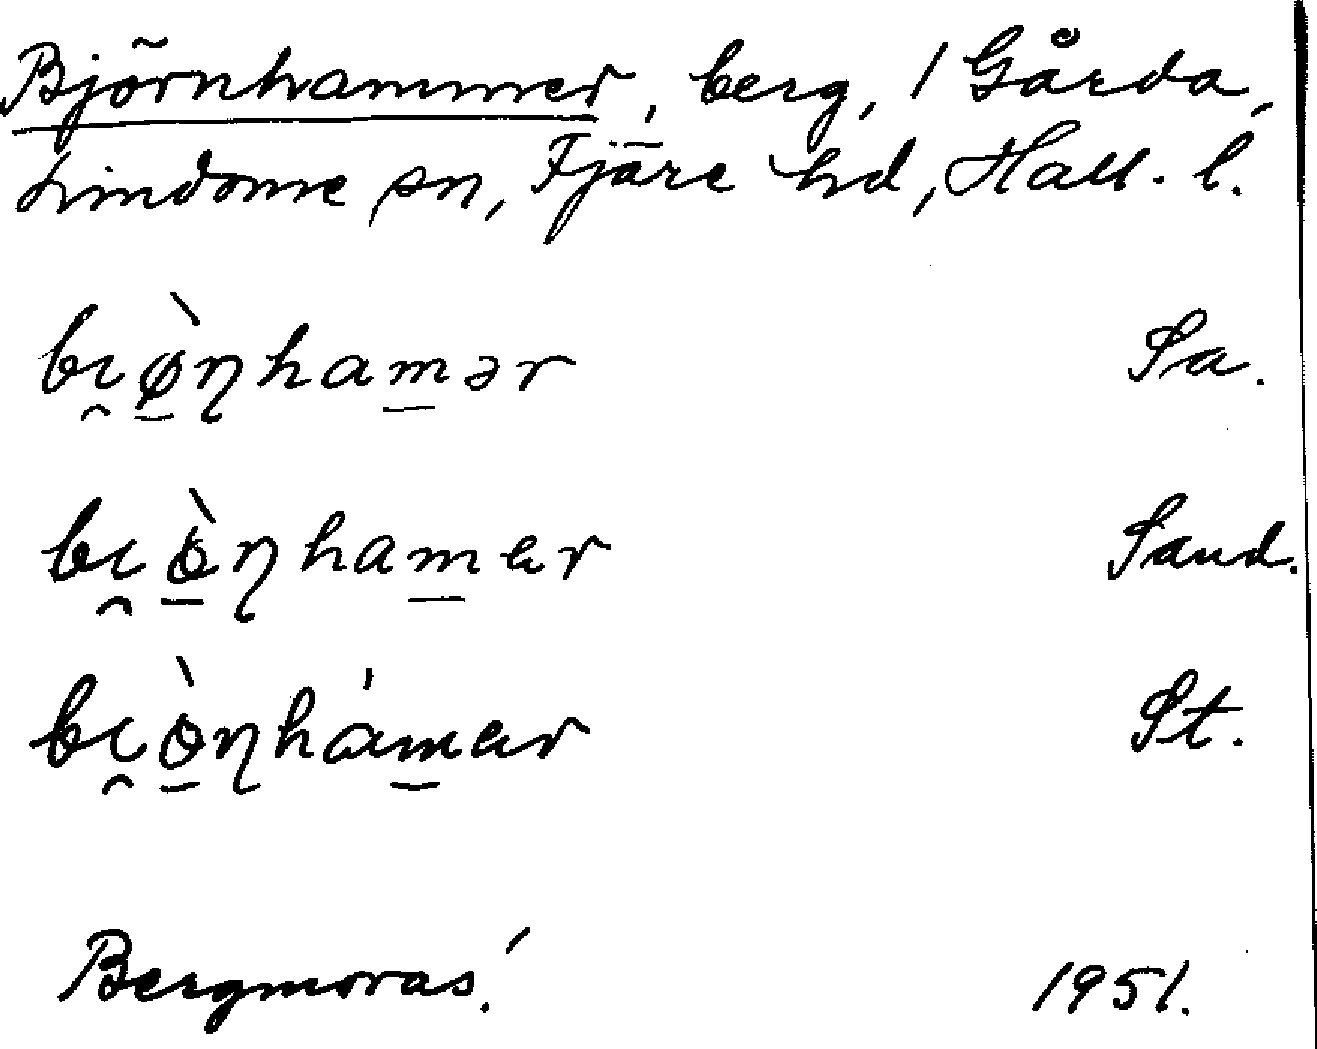 Björnhammer, berg, 1 Gårda,
Lindome sn, Fjäre hd, Hall. l.
bi̯ø̠̀ɳham̠ər Sa.
bi̯ò̠ɳham̠er Sand.
bi̯ò̠ɳhám̠er St.
Bergmoras. 1951.